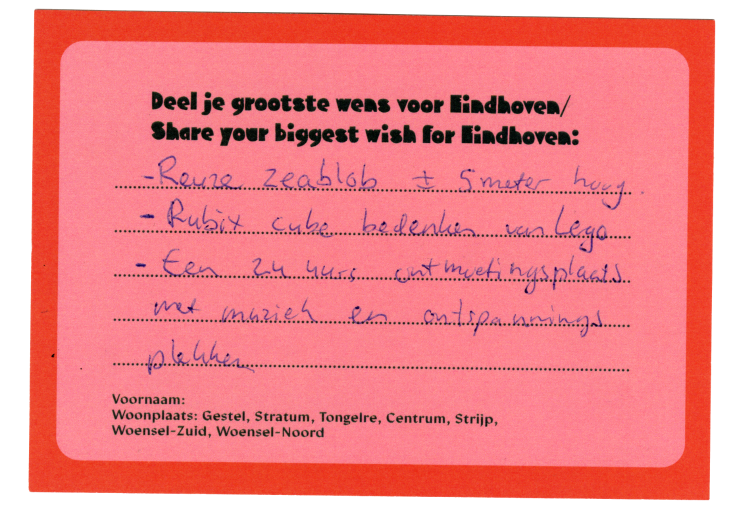 Deel je grootste wens voor Eindhoven/
Share your biggest wish for Eindhoven:
- Reuze zeablob ± 5 meter hoog.
- Rubix cube bedenken van Lego
- Een 24 uurs ontmoetingsplaats
met muziek en ontspannings
plekken
Voornaam:
Woonplaats: Gestel, Stratum, Tongelre, Centrum, Strijp,
Woensel-Zuid, Woensel-Noord